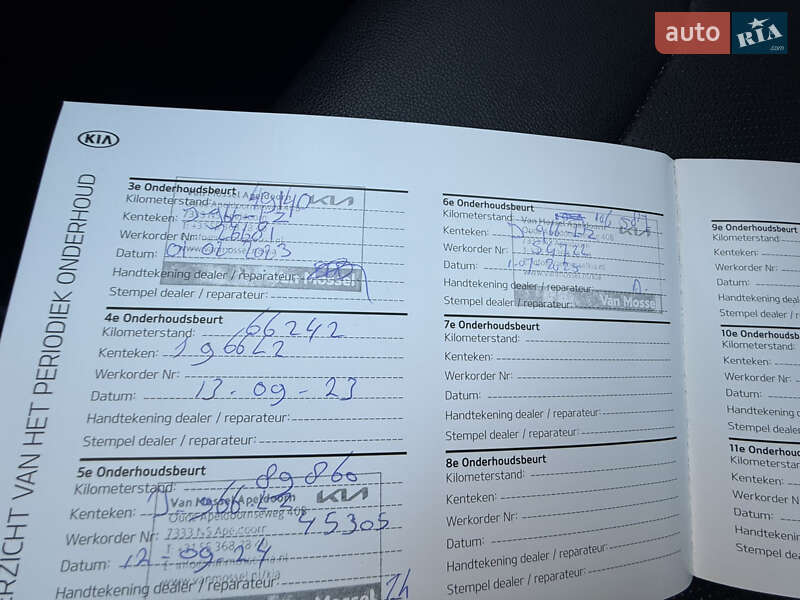 auto RIA.com
KIA
OVERZICHT VAN HET PERIODIEK ONDERHOUD
3e Onderhoudsbeurt
Kilometerstand:
Kenteken:
Werkorder Nr: 26681
Datum: 01 02 2023
Handtekening dealer / reparateur:
Stempel dealer / reparateur:
Van Mossel
4e Onderhoudsbeurt
Kilometerstand: 66242
Kenteken:
Werkorder Nr:
Datum: 13-09-23
Handtekening dealer / reparateur:
Stempel dealer / reparateur:
5e Onderhoudsbeurt
Kilometerstand: 89860
KIA
Van Mossel Apeldoorn
Kenteken:
Oude Apeldoornseweg 40B
Werkorder Nr: 45305
Datum: 12 09 24
Handtekening dealer / reparateur:
Van Mossel
6e Onderhoudsbeurt
Kilometerstand:
Kenteken:
Werkorder Nr:
Datum:
Handtekening dealer / reparateur:
Stempel dealer / reparateur:
Van Mossel
7e Onderhoudsbeurt
Kilometerstand:
Kenteken:
Werkorder Nr:
Datum:
Handtekening dealer / reparateur:
Stempel dealer / reparateur:
8e Onderhoudsbeurt
Kilometerstand:
Kenteken:
Werkorder Nr:
Datum:
Handtekening dealer / reparateur:
Stempel dealer / reparateur:
9e Onderhoudsbeurt
Kilometerstand:
Kenteken:
Werkorder Nr:
Datum:
Handtekening deale
Stempel dealer / r
10e Onderhoudsbe
Kilometerstand:
Kenteken:
Werkorder Nr:
Datum:
Handtekening
Stempel dealer
11e Onderhoud
Kilometerstand
Kenteken:
Werkorder Nr
Datum:
Handtekening
Stempel deal